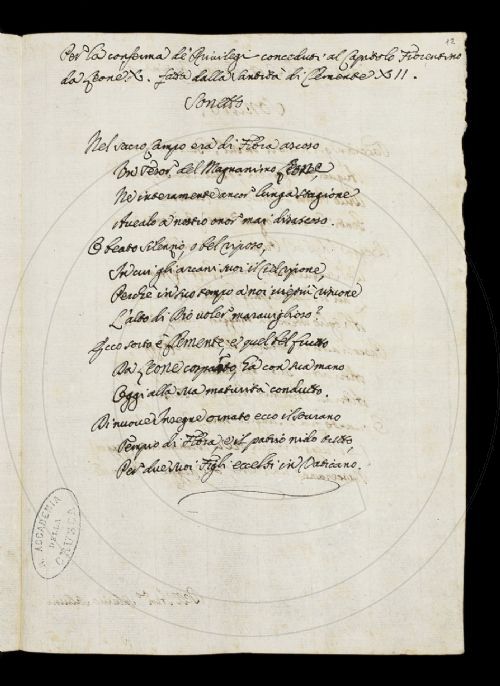 12
Per la conferma de' Privilegi conceduti al Capitolo Fiorentino
da Leone X. fatta dalla Santità di Clemente XII.
Sonetto.
Nel sacro campo era di Flora ascoso
Un Tesor del Magnanimo Leone,
Nè interamente ancor lunga stagione
Avealo a nostro onor mai disascoso.
O beato silenzio, o bel riposo,
In cui gli arcani suoi il Ciel ripone,
Perchè in suo tempo a noi virtù
L'alto di Dio voler maraviglioso!
Ecco sorto è Clemente, e quel bel frutto
Da Leone, ha con sua mano
Oggi alla sua maturità condutto.
Di nuove Insegne ornato ecco il sovrano
Tempio di Flora, e il patrio nido tutto,
Per due suoi Figli eccelsi in Vaticano.
ACCADEMIA
DELLA
CRUSCA